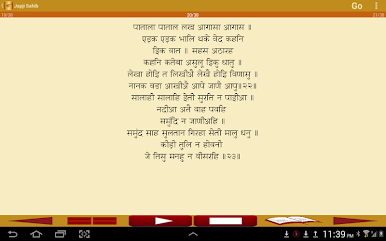 Japji Sahib
Go
19/30
20/30
21/30
पाताला पाताल लख आगासा आगास ॥
एड़क एड़क भालि थके वेद कहनि
इिक वात ॥ सहस अठारह
कहनि कतेबा असुलू इिकु धातु ॥
लेखा होइि त लिखीअै लेखै होइि विणासु ॥
नानक वडा आखीअै आपे जाणै आपु॥२२॥
सालाही सालाहि इेती सुरति न पाईआ ॥
नदीआ अतै वाह पवहि
समुंदि न जाणीअहि ॥
समुंद साह सुलतान गिरहा सेती मालु धनु ॥
कीड़ी तुलि न होवनी
जे तिसु मनहु न वीसरहि ॥२३॥
11:39 PM